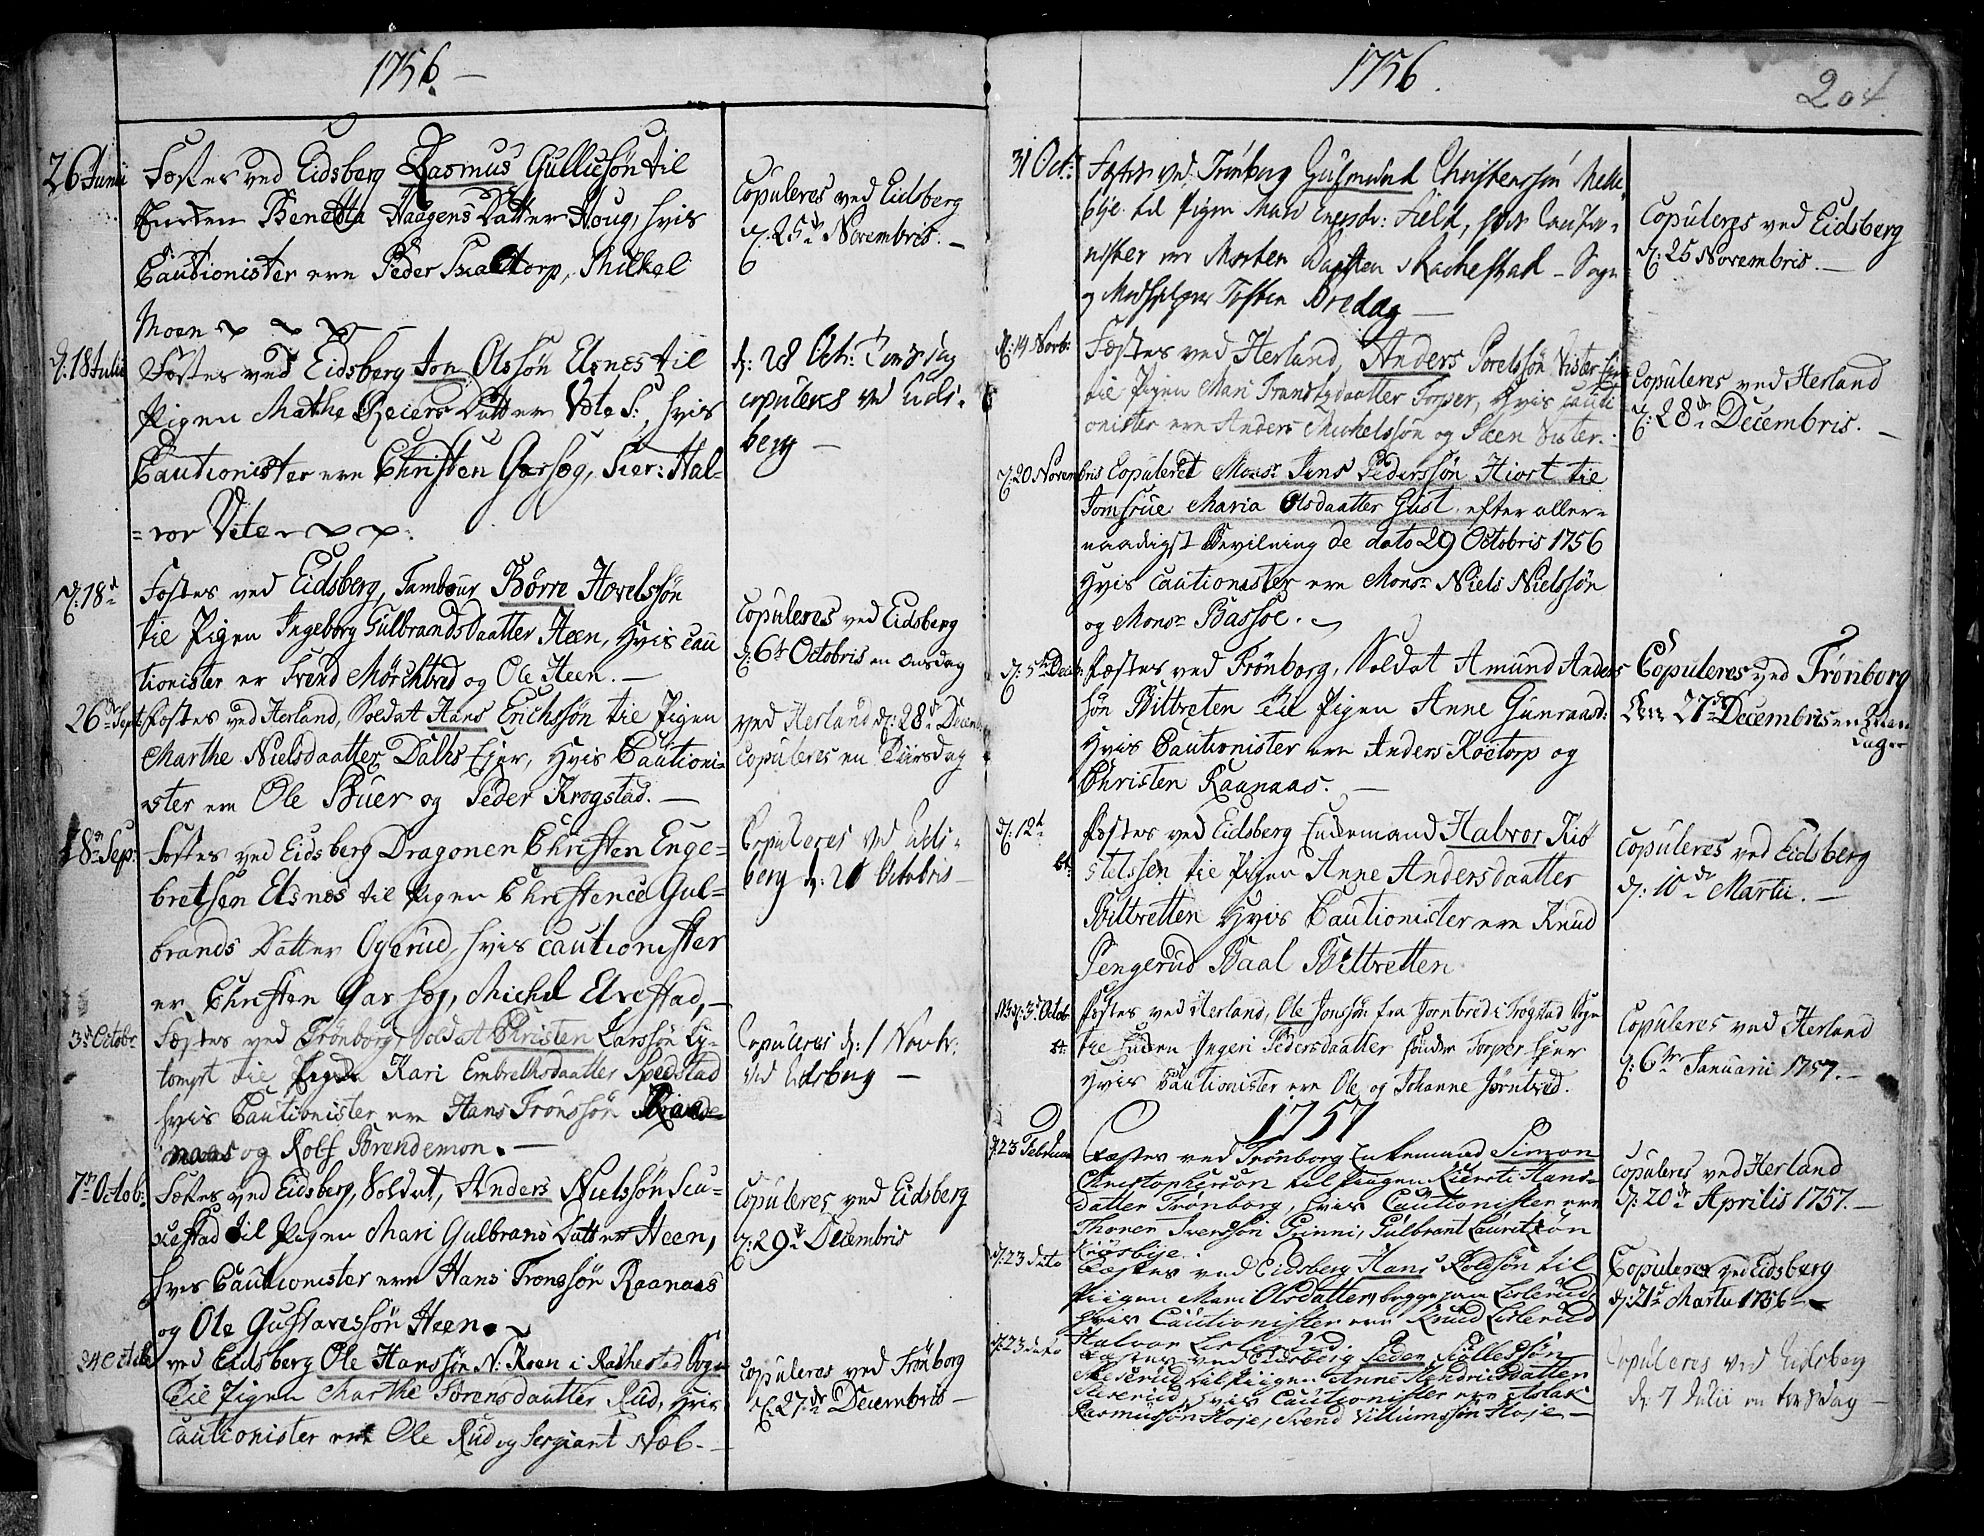 1756.
26 Junii Festes ved Eidsberg Rasmus Gullicsøn til
Enken Benetta Haagens Datter Houg, hvis
Cautionister ere Peder Torp, Mikkel
Moen
Copuleres ved Eidsberg
d: 25de Novembris. -
d: 18 Julii Festes ved Eidsberg Jon Olssøn Elsnes til
Pigen Mathe Reiers Datter Vete S:, hvis
Cautionister ere Christen Garseg, Hal-
= vor Vete
d: 28 Oct: Torsdag
copuleres ved Eids-
berg -
d: 18de Festes ved Eidsberg, Tambour Børre Hovelssøn
til Pigen Ingeborg Gulbrandsdaatter Heen, hvis Cau
tionister er Svend Mörchved og Ole Heen. -
Copuleres ved Eidsberg
d: 6te Octobris en Onsdag
26de Sept. Festes ved Herland, Soldat Hans Erichssøn til Pigen
Marthe Nielsdaatter Dahls Eier, hvis Cautioni-
ster ere Ole Buer og Peder Krogstad. -
ved Herland d: 28de Decemb:
copuleres en Tiirsdag
18de Sep: Festes ved Eidsberg Dragonen Christen Enge-
bretsen Elsnes til Pigen Christence Gul-
brands Datter Ogerud, hvis cautionister
er Christen Garseg, Michel Elvestad, -
Copuleres ved Eids-
berg d: 21 Octobris -
3de Octobr: Festes ved Trönborg, Soldat Christen Larssøn Ly-
tomt til Pigen Kari Embrethsdaatter Spedstad
hvis Cautionister ere Hans Trönssøn Raan-
naas og Rolf Brendemon. -
Copuleres d: 1 Novbr:
ved Eidsberg -
7de Octob: Festes ved Eidsberg, Soldat, Anders Nielssøn Scu-
lestad til Pigen Mari Gulbrans Datter Heen,
hvis Cautionister ere Hans Tronssøn Raanaas
og Ole Gustavssøn Heen.
Copuleres ved Eidsberg
d: 29de Decembris
24 Octobr ved Eidsberg Ole Hanssøn N: Keen i Rachestad Sogn
til Pigen Marthe Sørensdaatter Rud, hvis
cautionister ere Ole Rud og Sergiant Næb. -
Copuleres ved Trönborg
d: 27de Decembris -
1756.
204
31 Octr: Festes ved Trönborg Gudmund Christenssøn Melle-
bye til Pigen Mari Field, hvis Cautio-
nister er Morten Rachestad Sogn
og Torsten Bredag -
Copuleres ved Eidsberg
d: 25 Novembris. -
d: 14 Novb: Festes ved Herland, Anders Povelssøn Vister
til Pigen Mari Torper, hvis cauti
onister ere Anders Michelssøn og Steen Vister.
Copuleres ved Herland
d: 28de Decembris. -
d: 20 Novembris Copuleret Monsr Jens Pederssøn Hiort til
Jomfrue Maria Olsdaatter Gust, efter aller-
naadigst Bevilning de dato 29 Octobris 1756
hvis cautionister ere Monsr Niels Nielssøn
og Monsr Bassoe.
d: 5te Decb: Festes ved Trönborg, Soldat Amund Anders
søn Bittreten til Pigen Anne Gunvaasd:
hvis Cautionister ere Anders Koctorp og
Christen Raanaas. -
Copuleres ved Trönborg
den 27de Decembris en Man
dag
d: 12te Festes ved Eidsberg Enkemand Halvor Kiø
stelssen til Pigen Anne Andersdaatter
Bittretten hvis Cautionister ere Knud
Sengerud Baal Bittretten
Copuleres ved Eidsberg
d: 10de Martii. -
NB d: 3de Octob: Festes ved Herland, Ole Jonssøn fra Jorntved i Trögstad Sogn
til Enken Ingeri Pedersdaatter Sönder Torper Eier
hvis Cautionister ere Ole og Johanne Jörntved.
Copuleres ved Herland
d: 6te Januarii 1757. -
1757
d: 23 Februar Festes ved Trönborg Enkemand Simon
Christophersøn til Pigen Kiersti Hans-
datter Trönborg, hvis Cautionister ere
Thoren Svendsøn Gunni, Gulbrant Lauritzøn
Kruesbye.
Copuleres ved Herland
d: 20de Aprilis 1757. -
d: 23 dato Festes ved Eidsberg Hans Roldsøn til
Piigen Mari Olsdatter, begge paa Lislerud,
hvis Cautionister ere Knud Lislerud
Halvor Lislerud.
Copuleres ved Eidsberg
d: 21de Martii 1756 -
d: 23 dato Festes ved Eidsberg Peder Kiøllessøn
til Piigen Anne Hendrichsdatter
hvis Cautionister ere Aslak
Rasmussøn Høje, Svend Villumssøn Høje -
Copuleres ved Eidsberg
d: 7 Julii en torsdag -